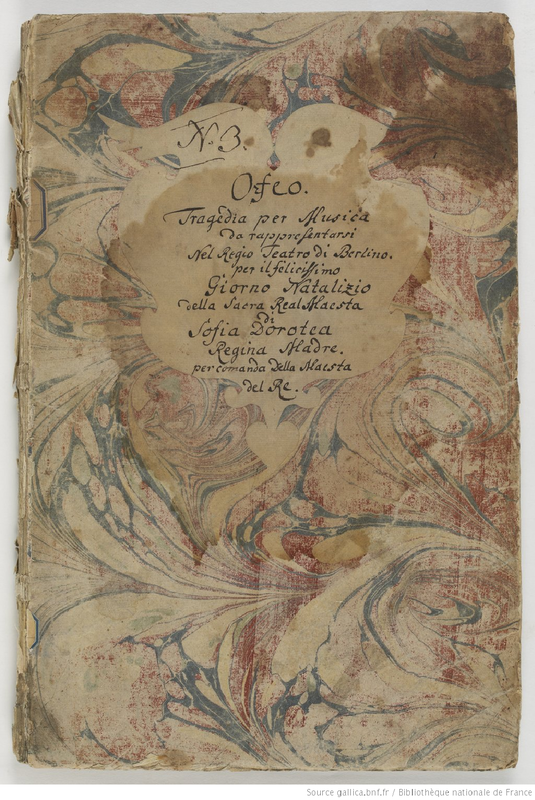 N. 3.
Orfeo.
Tragedia per Musica
da rappresentarsi
Nel Regio Teatro di Berlino.
per il felicissimo
Giorno Natalizio
della Sacra Real Maesta
di
Sofia Dorotea
Regina Madre.
per comanda Della Maesta
del Re.
Source gallica.bnf.fr / Bibliothèque nationale de France